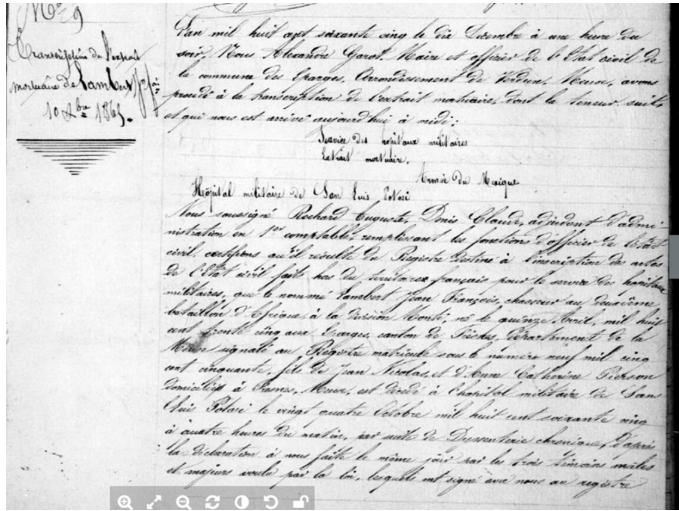 N° 9
Transcription de l'extrait
mortuaire de Lambert Jn fois
10 Xbre 1865.
L'an mil huit cent soixante cinq le dix Décembre à une heure du
soir, Nous Alexandre Garot, Maire et officier de l'Etat civil de
la commune des Eparges, Arrondissement de Verdun, Meuse, avons
procédé à la transcription de l'extrait mortuaire, dont la teneur suit,
et qui nous est arrivé aujourd'hui à midi:
Service des hopitaux militaires
Extrait mortuaire.
Armée du Mexique
Hôpital militaire de San Luis Potosi
Nous soussigné Rochard Auguste Denis Claude, adjudant d'admi-
nistration en 1er comptable, remplissant les fonctions d'officier de l'Etat
civil, certifions qu'il résulte du Registre destiné à l'inscription des actes
de l'Etat civil faits hors du territoire français pour le service des hopitaux
militaires, que le nommé Lambert Jean François, chasseur au deuxième
bataillon d'Afrique, à la division, né le quinze Avril, mil huit
cent trente cinq aux Eparges canton de Fresnes, département de la
Meuse signalé au Régistre matricule sous le numéro neuf mil cinq
cent cinquante, fils de Jean Nicolas, et d'Anne Catherine Pierson
domiciliés à Fresnes, Meuse, est décédé à l'hopital militaire de San
Luis Potosi le vingt quatre Octobre mil huit cent soixante cinq
à quatre heures du matin, par suite de Dyssenterie chronique, d'après
la déclaration à nous faite le même jour par les trois témoins mâles
et majeurs voulu par la loi, lesquels ont signé avec nous au registre